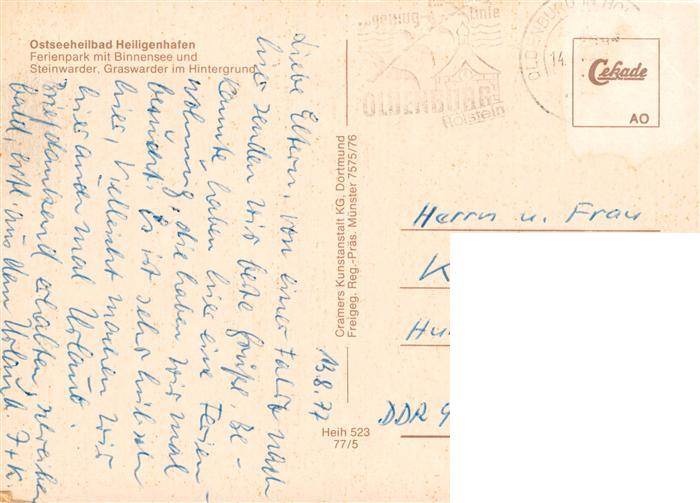 Ostseeheilbad Heiligenhafen
Ferienpark mit Binnensee und
Steinwarder, Graswarder im Hintergrund
Liebe Eltern, von einer Fahrt nach
hier senden wir beste Grüße. Be-
kannte haben hier eine Ferien-
wohnung, die haben wir mal
besucht. Es ist sehr hübsch
hier, vielleicht machen wir
hier auch mal Urlaub.
Brief dankend erhalten, schreiben
bald, erst muß dem Urlaub
13.8.77
Cramers Kunstanstalt KG, Dortmund
Freigeg. Reg.-Präs. Münster 7575/76
Heih 523
77/5
linie
OLDENBURG
Holstein
OLDENBURG IN HOL
14.
Cekade
AO
Herrn u. Frau
K
Hu
DDR 9